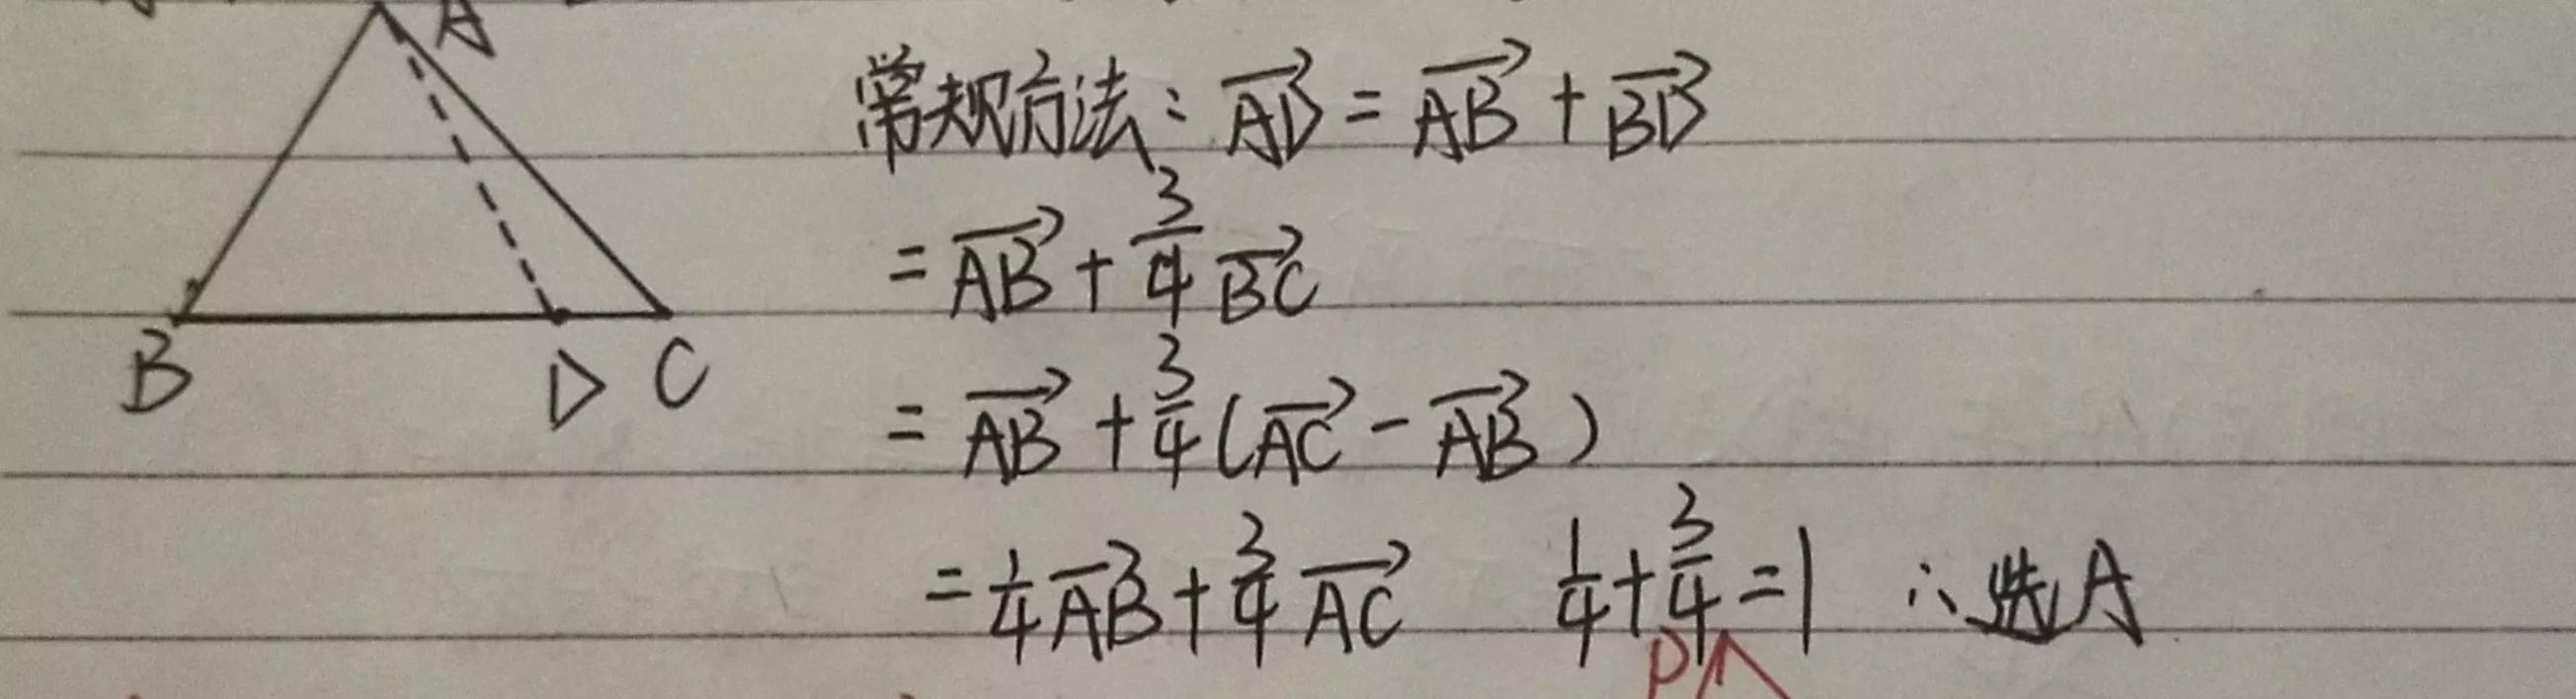 A
常规方法：$\overrightarrow{AD} = \overrightarrow{AB} + \overrightarrow{BD}$
$= \overrightarrow{AB} + \frac{3}{4}\overrightarrow{BC}$
B D C
$= \overrightarrow{AB} + \frac{3}{4}(\overrightarrow{AC} - \overrightarrow{AB})$
$= \frac{1}{4}\overrightarrow{AB} + \frac{3}{4}\overrightarrow{AC}$ $\frac{1}{4} + \frac{3}{4} = 1$ ∴选A
P